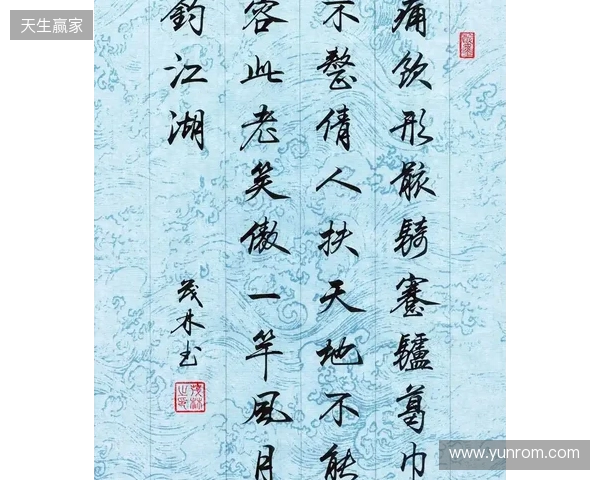 天生赢家
痛飲形骸騎蹇驢葛巾
不整倩人扶天地不能
容此老笑傲一竿風月
釣江湖
茂林书
www.yunrom.com